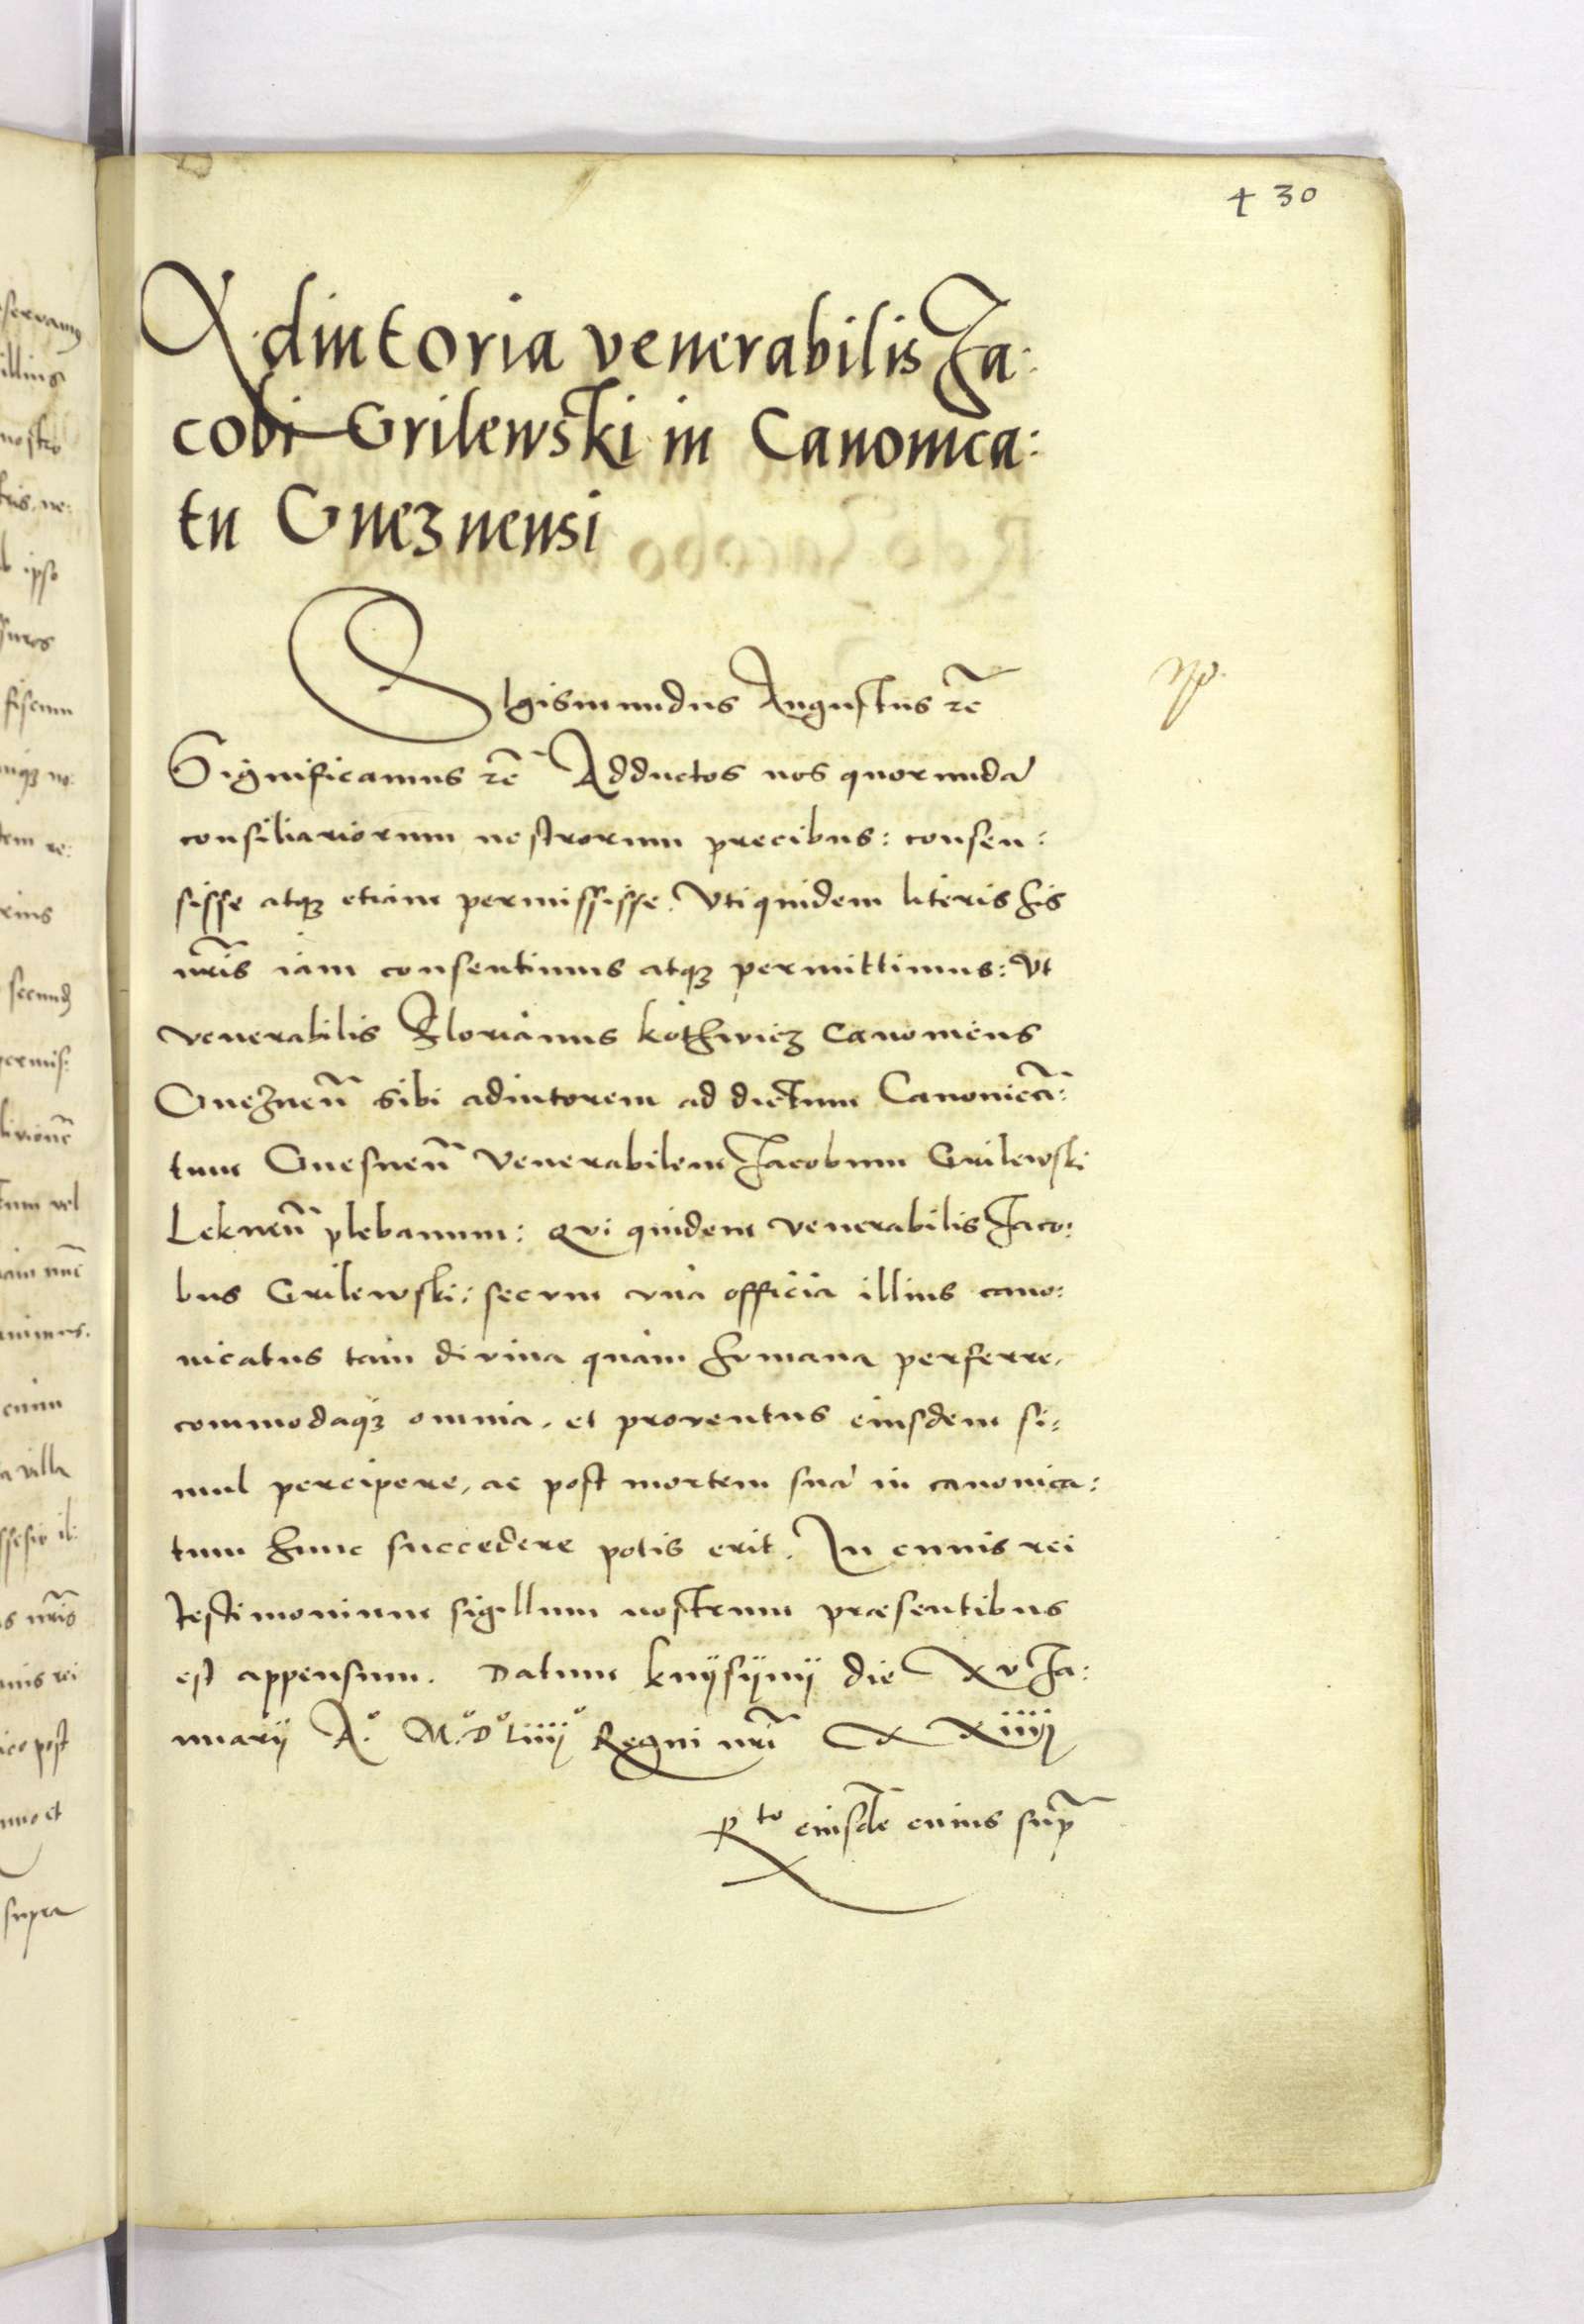 430
Adiutoria venerabilis Ja:
cobi Grilewski in Canonica:
tu Gneznensi
SIgismundus Augustus rc̃
Significamus rc̃ Adductos nos quorundã
consiliariorum nostrorum precibus: consen:
sisse atqꝫ etiam permississe. Vti quidem literis his
nr̃is iam consentimus atqꝫ permittimus: Vt
venerabilis Florianus Kothwicz Canonicus
Gneznen̄ sibi adiutorem ad dictum Canonica:
tum Gnesnen̄ Venerabilem Jacobum Grilewski
Leknen̄ plebanum: Qui quidem venerabilis Jaco:
bus Grilewski: secum una officia illius cano:
nicatus tam divina quam humana perferre,
commodaqꝫ omnia, et proventus eiusdem si:
mul percipere, ac post mortem suã in canonica:
tum hunc succedere potis erit. In cuius rei
testimonium sigillum nostrum præsentibus
est appensum. Datum knÿsÿnÿ die XV Ja:
nuarÿ A.º M.º Dº Liiijº Regni nr̃i XXiiiij
Rto eiusdẽ cuius supr̃
seruamus
illius
nostro
ipso
fiscum
rius
secund
permis:
tum vel
nunc
villa
s nr̃is
uius rei
post
supra